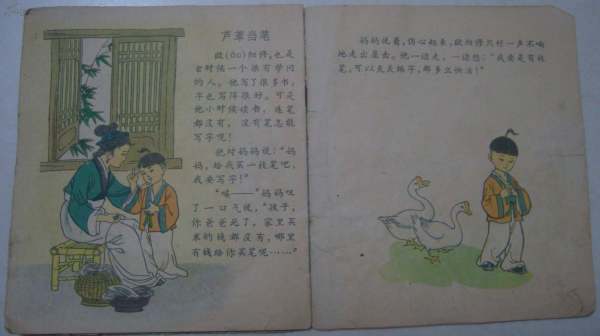 芦苇当笔
欧(ōu)阳修，也是
古时候一个很有学问
的人。他写了很多书，
字也写得很好。可是
他小时候读书，连笔
都没有。没有笔怎能
写字呢！
他对妈妈说："妈
妈，给我买一枝笔吧，
我要写字！"
"唉——"妈妈叹
了一口气说，"孩子，
你爸爸死了，家里买
米的钱都没有，哪里
有钱给你买笔呢……"
妈妈说着，伤心起来，欧阳修只好一声不响
地走出屋去。他一边走，一边想："我要是有枝
笔，可以天天练字，那多么快活！"